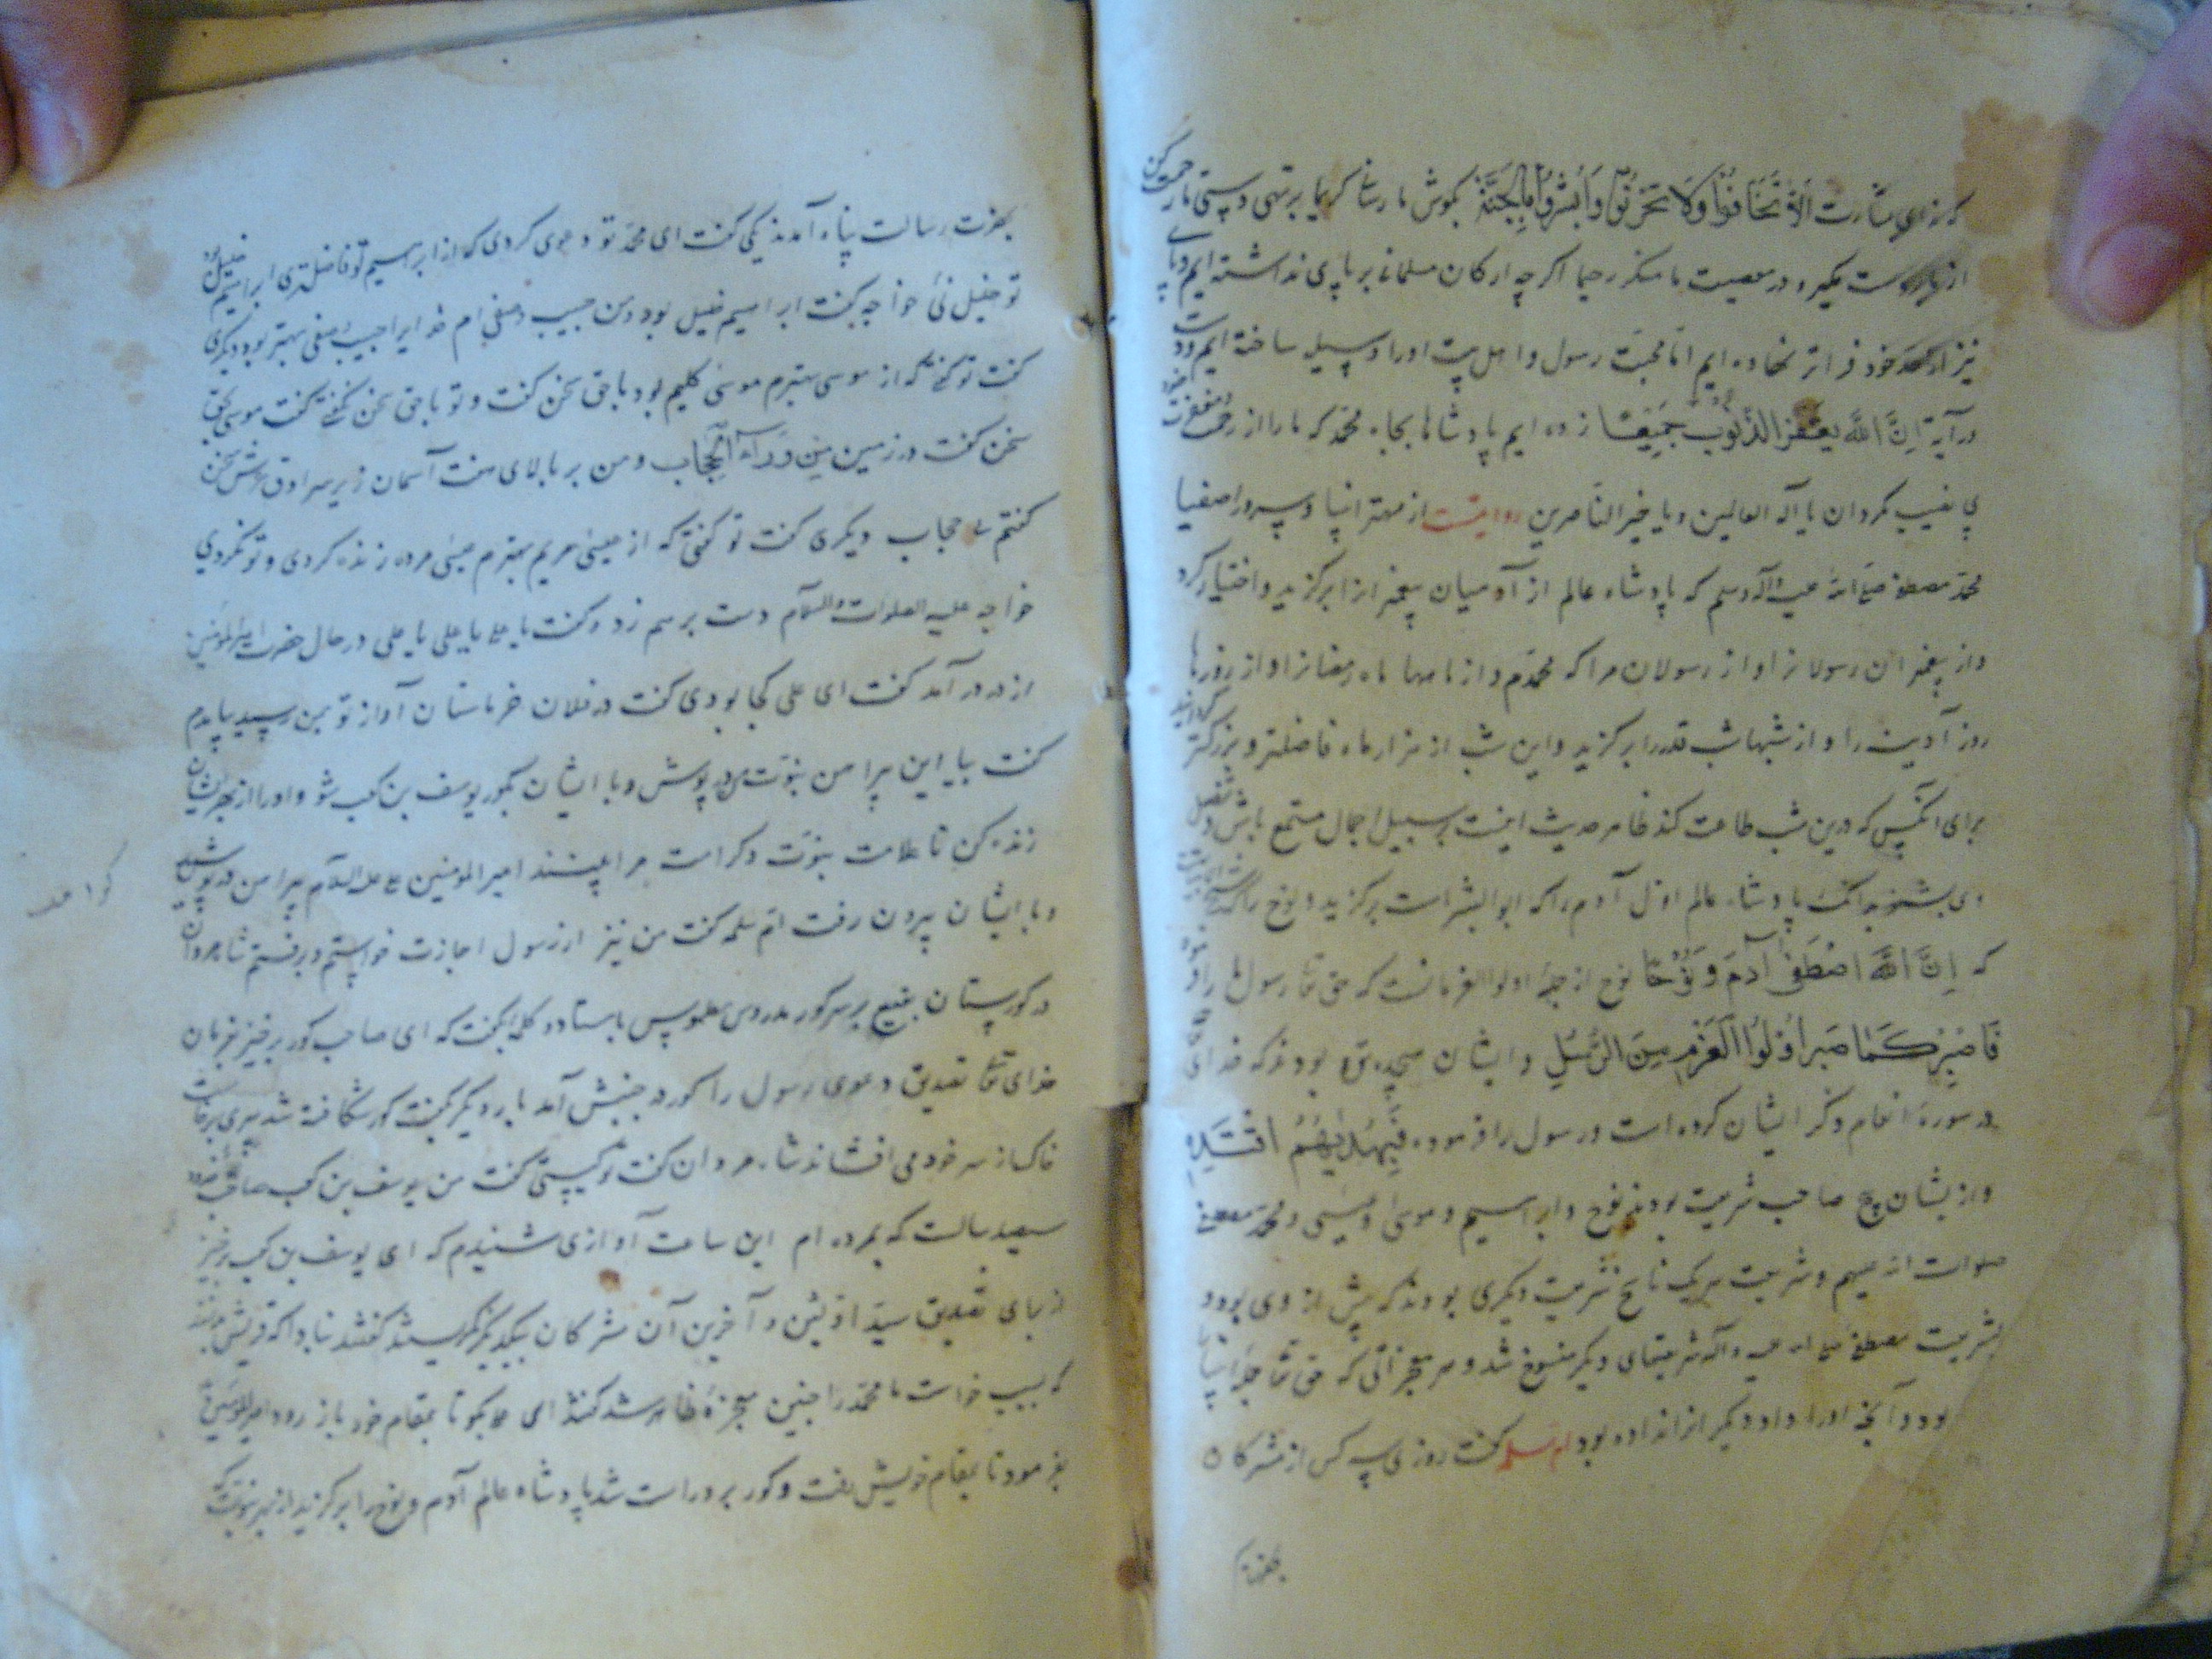 که ندای بشارت اَلَّا تَخَافُوا وَلَا تَحْزَنُوا وَاَبْشِرُوا بِالْجَنَّةِ بگوش ما رسان کریما بر تهی دستی ما رحمت کن
از ما دست مگیر و در معصیت ما منکر رحیما اگرچه ارکان مسلمانی بر پای نداشته ایم و پای
نیز از حد خود فراتر نهاده ایم اما محبت رسول و اهل بیت او را وسیله ساخته ایم و دست
در آیة اِنَّ اللهَ یَغْفِرُ الذُّنُوبَ جَمِیعًا زده ایم پادشاها بجاه محمد که ما را از رحمت و مغفرت خود
بی نصیب مگردان یا اله العالمین و یا خیر الناصرین روایتست از مهتر انبیا و سرور اصفیا
محمد مصطفی صلی الله علیه وآله وسلم که پادشاه عالم از آدمیان پیغمبرانرا برگزید و اختیار کرد
و از پیغمبران رسولانرا و از رسولان مرا که محمدم و از ماهها ماه رمضانرا و از روزها
روز آدینه را و از شبها شب قدر را برگزید و این شب از هزار ماه فاضلتر و بزرگتر گردانید
برای آنکس که درین شب طاعت کند ظاهر حدیث اینست بر سبیل اجمال مستمع باش و تفصیل
وی بشنو بدانکه پادشاه عالم اول آدم را که ابو البشر است برگزید و نوح را که
که اِنَّ اللهَ اصْطَفٰی آدَمَ وَنُوحًا نوح از جمله اولو العزمانست که حق تعا رسول را فرمود
فَاصْبِرْ کَمَا صَبَرَ اُولُوا الْعَزْمِ مِنَ الرُّسُلِ و ایشان بودند که خدای
در سورة انعام ذکر ایشان کرده است و رسول را فرموده فَبِهُدٰیهُمُ اقْتَدِهْ
و از یشان پنج صاحب شریعت بودند نوح و ابراهیم و موسی و عیسی و محمد مصطفی
صلوات الله علیهم و شریعت هر یک ناسخ شریعت دیگری بودند که پیش از وی بود و
بشریعت مصطفی صلی الله علیه وآله شریعتهای دیگر منسوخ شد و هر معجزاتی که حق تعا جمله انبیا را
بود و آنچه او را داد دیگرانرا نداده بود ام سلمه گفت روزی سه کس از مشرکان
بحضرت
بحضرت رسالت پناه آمدند یکی گفت ای محمد تو دعوی کردی که از ابراهیم تو فاضلتری ابراهیم خلیل بود
تو خلیل نئی خواجه گفت ابراهیم خلیل بود و من حبیب و صفی ام خدایرا حبیب صفی بهتر بود دیگری
گفت تو گفتی که از موسی بهترم موسی کلیم بود با حق سخن گفت و تو با حق سخن نگفتی گفت موسی بحق
سخن گفت در زمین مِن وَرَآءِ الْحِجَابِ و من بر بالای هفت آسمان زیر سرادق عرش سخن
گفتم بی حجاب دیگری گفت تو گفتی که از عیسی مریم بهترم عیسی مرده زنده کردی و تو نکردی
خواجه علیه الصلوات والسلام دست برهم زد و گفت یا علی یا علی یا علی در حال حضرت امیر المؤمنین
از در درآمد گفت ای علی کجا بودی گفت در فلان خرماستان آواز تو بمن رسید بیامدم
گفت بیا این پیراهن نبوت درپوش و با ایشان بگور یوسف بن کعب شو و او را از بهر ایشان
زنده کن تا علامت نبوت و کرامت مرا ببینند امیر المومنین علی علیه السلام پیراهن درپوشید
و با ایشان بیرون رفت ام سلمه گفت من نیز از رسول اجازت خواستم و برفتم شاه مردان
در گورستان بقیع بر سر گور مدروس مطموس باستاد و کلمه بگفت که ای صاحب گور برخیز بفرمان
خدای تعا تصدیق دعوی رسول را گور در جنبش آمد بار دیگر بگفت گور شکافته شد پیری برخاست
خاک از سر خود می افشاند شاه مردان گفت تو کیستی گفت من یوسف بن کعب
سیصد سالست که بمرده ام این ساعت آوازی شنیدم که ای یوسف بن کعب برخیز
از برای تصدیق سید اولین و آخرین آن مشرکان بیکدیگر نگریستند گفتند نبادا که قریش بدانند
که بسبب خواست ما محمد را چنین معجزه ظاهر شد گفتند ای علی بگو تا بمقام خود باز رود امیر المومنین
بفرمود تا بمقام خویش رفت و گور برو راست شد پادشاه عالم آدم و نوح را برگزید